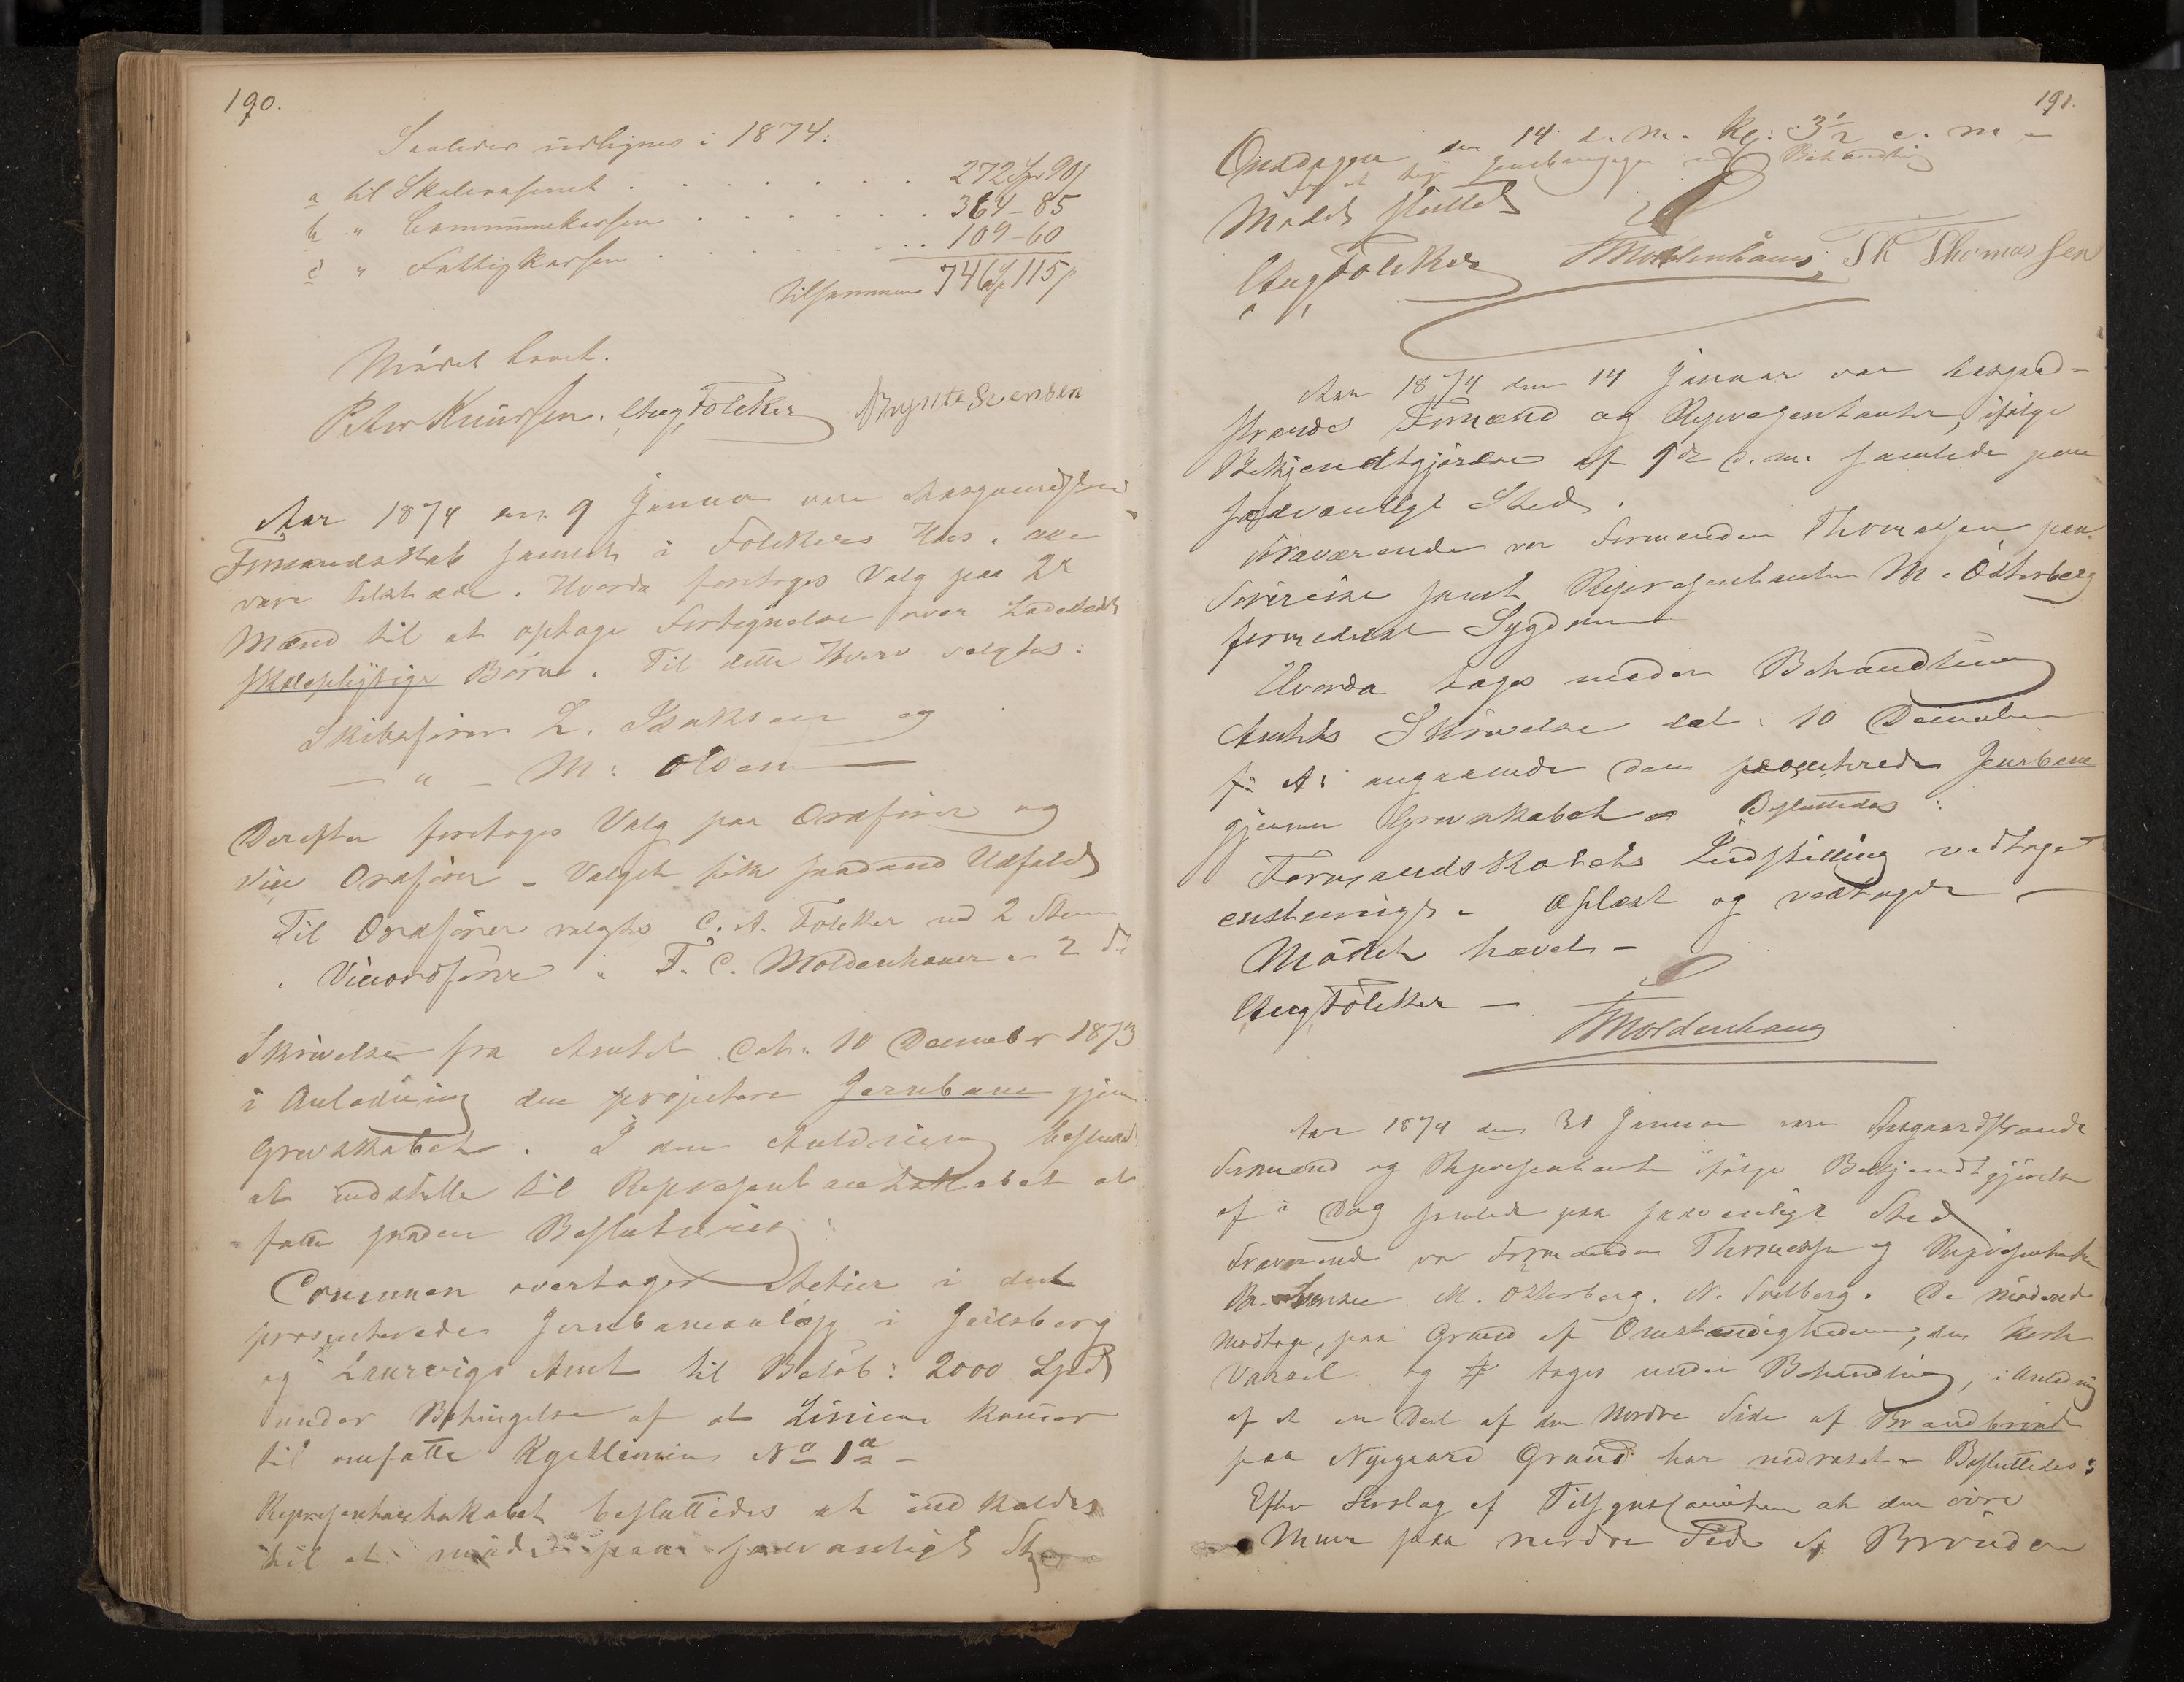 190.
Saaledes udlignes i 1874:
a til Skolevæsenet . . . . . . . 272 Spd 90 ß
b " Communekassen . . . . . . . 364 - 85
c " Fattigkassen . . . . . . . 109 - 60
tilsammen 746 Spd 115 ß
Mödet hævet.
Peter Knudsen. Aug Fölcker Brynte Svensen
Aar 1874 den 9 Januar var Aasgaardstrands
Formandskab samlet i Fölckers Hus, alle
vare tilstæde. Hvorda foretoges Valg paa 2de
Mænd til at optage Fortegnelse over Ladestedets
skolepligtige Börn. Til dette Hverv valgtes:
Skibsförer L. Isaksen og
— " — M: Olsen —
Derefter foretoges Valg paa Ordförer og
Vice Ordförer - Valget fik saadand Udfald
Til Ordförer valgtes C. A. Fölcker med 2 Stemmer
" Viceordförer " F. C. Moldenhauer " 2 do
Skrivelse fra Amtet dat. 10 December 1873
i Anledning den projectere Jernbane gjen
Grevskabet. I den Anledning besluttedes
at indstille til Representantskabet at
fatte saadan Beslutning:
Communen overtager Actier i det
prosjecterede Jernbaneanlæg i Jarlsberg
og Laurvigs Amt til Belöb: 2000 Spd
under Betingelse af at Linien kommer
til omfatte Kyстlinien No 1a -
Representantskabet besluttedes at indkaldes
til at möde paa sædvanligt Sted
191.
Onsdagen den 14 d. M. Kl: 3 1/2 e. m
for at tage Jernbanesagen under Behandling
Mödet sluttet
Aug Fölcker FMoldenhauer SK Thomassen
Aar 1874 den 14 Januar var Aasgaard-
strands Formænd og Representanter, ifölge
Bekjendtgjörelse af 9de d. m. samlede paa
sædvanligt Sted.
Fraværende var Formanden Thomassen paa
Söreise samt Representanten M. Österberg
formedelst Sygdom
Hvorda toges under Behandling
Amtets Skrivelse dat: 10 December
f: A: angaaende den projecterede Jernbane
gjennem Grevskabet - Besluttedes:
Formandskabets Indstilling vedtaget
enstemmigt. Oplæst og vedtaget -
Mödet hævet -
Aug Fölcker — FMoldenhauer
Aar 1874 den 31 Januar var Aasgaardstrands
Formænd og Representanter ifölge Bekjendtgjörelse
af i Dag samlede paa sædvanligt Sted
Fraværende var Formanden Thomassen og Representanterne
B. Svensen. M. Österberg. N. Solberg. De mödende
modtoge, paa Grund af Omstændighederne, den korte
Varsel og toges under Behandling, i Anledning
af at en Deel af den Nordre Side af Brandbrönden
paa Nygaard Grund har nedraset - Besluttedes:
Efter Forslag af Tilsynscomiteen at den övre
Muur paa nordre Side af Brönden